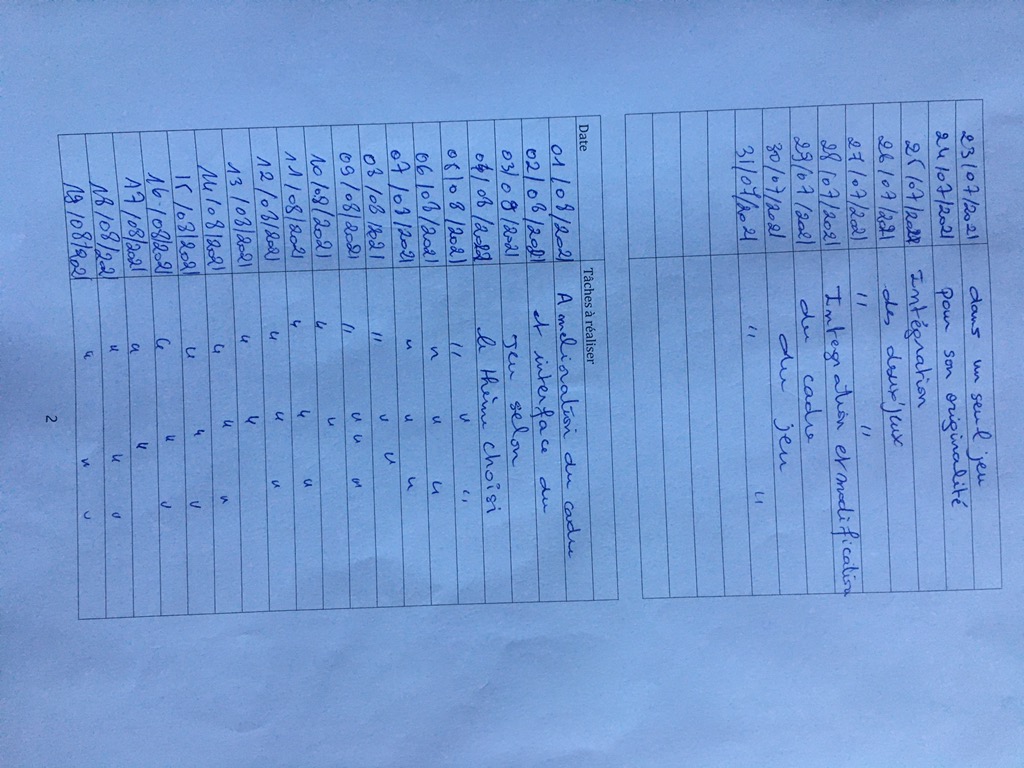 23/07/2021 dans un seul jeu
24/07/2021 pour son originalité
25/07/2021 Intégration
26/07/2021 des deux jeux
27/07/2021 " "
28/07/2021 Integration et modification
29/07/2021 du cadre
30/07/2021 du jeu
31/07/2021 " "
Date Tâches à réaliser
01/08/2021 Amélioration du cadre
02/08/2021 et interface du
03/08/2021 jeu selon
04/08/2021 le thème choisi
05/08/2021 " " "
06/08/2021 " " "
07/08/2021 " " "
08/08/2021 " " "
09/08/2021 " " " "
10/08/2021 " "
11/08/2021 " " "
12/08/2021 " " "
13/08/2021 " "
14/08/2021 " " "
15/08/2021 " " "
16/08/2021 " " "
17/08/2021 " "
18/08/2021 " " "
19/08/2021 " " "
2